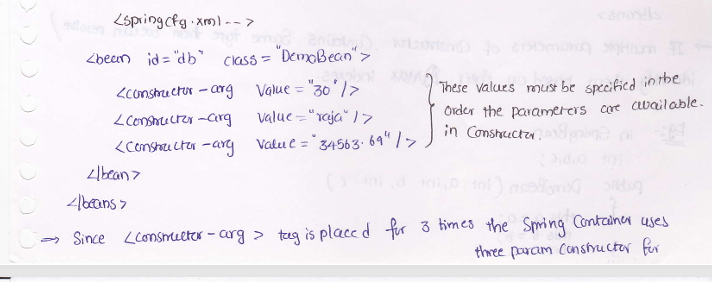 <springcfg.xml-->
<bean id="db" class="DemoBean">
<constructor-arg value="30"/>
<constructor-arg value="raja"/>
<constructor-arg value="34563.69"/>
These values must be specified in the
order the parameters are available.
in Constructor.
</bean>
</beans>
⇒ Since <constructor-arg> tag is placed for 3 times the Spring Container uses
three param constructor for